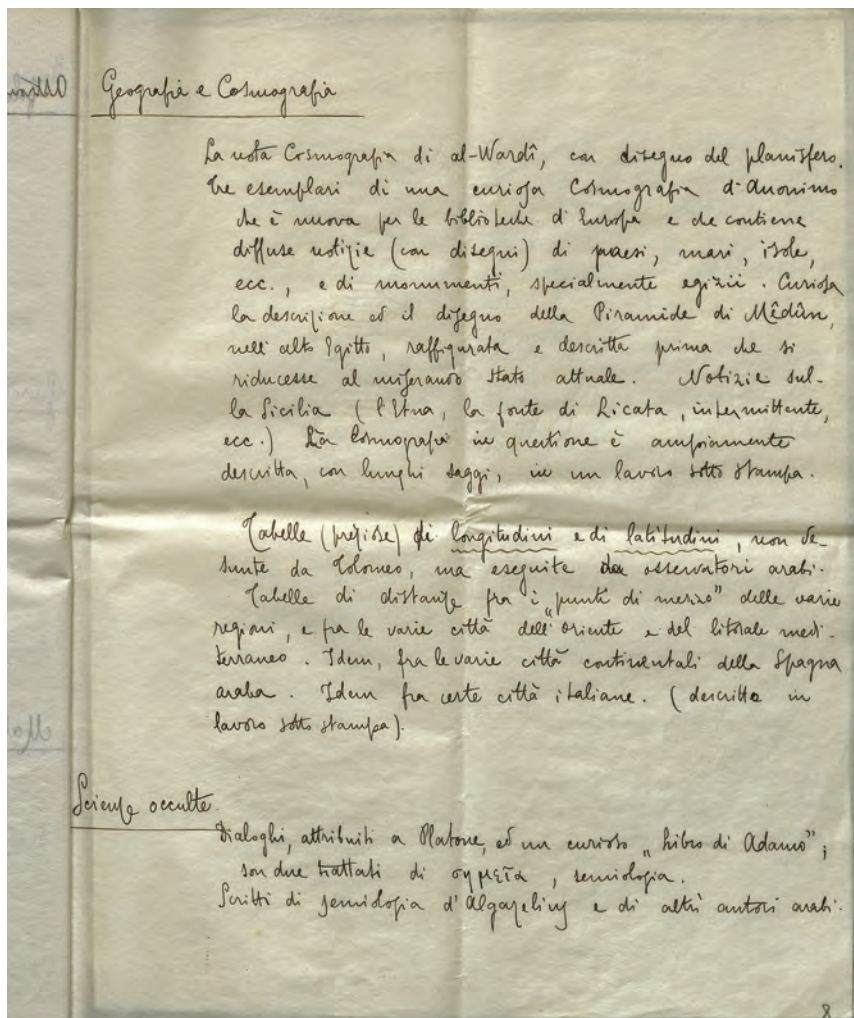 Geografia e Cosmografia
La nota Cosmografia di al-Wardî, con disegno del planisfero.
Tre esemplari di una curiosa Cosmografia d'Anonimo
che è nuova per le biblioteche d'Europa e che contiene
diffuse notizie (con disegni) di paesi, mari, isole,
ecc., e di monumenti, specialmente egizii. Curiosa
la descrizione ed il disegno della Piramide di Mêdûm,
nell'alto Egitto, raffigurata e descritta prima che si
riducesse al miserando stato attuale. Notizie sul-
la Sicilia (l'Etna, la fonte di Licata, intermittente,
ecc.) La Cosmografia in questione è ampiamente
descritta, con lunghi saggi, in un lavoro sotto stampa.
Tabelle (preziose) di longitudini e di latitudini, non de-
sunte da Tolomeo, ma eseguite da osservatori arabi.
Tabelle di distanze fra i „punti di mezzo" delle varie
regioni, e fra le varie città dell'oriente e del litorale medi-
terraneo. Idem, fra le varie città continentali della Spagna
araba. Idem fra certe città italiane. (descritte in
lavoro sotto stampa).
Scienze occulte.
Dialoghi, attribuiti a Platone, ed un curioso „Libro di Adamo";
son due trattati di σημεῖα, semiologia.
Scritti di semiologia d'Algazeling e di altri autori arabi.
8